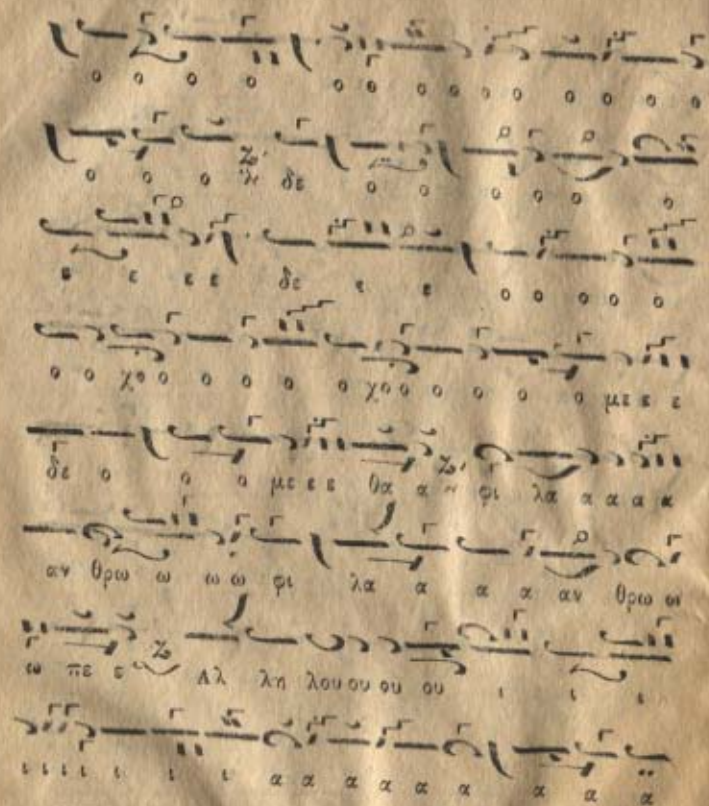 ο ο ο ο ο ο ο ο ο ο ο ο ο ο
ο ο ο δε ο ο ο ο ο ο
ε ε ε ε δε ε ε ο ο ο ο ο
ο ο χο ο ο ο ο ο χο ο ο ο ο ο με ε ε
δε ο ο ο με ε ε θα α φι λα α α α α
αν θρω ω ω ω φι λα α α α αν θρω ω
ω πε ε Αλ λη λου ου ου ου ι ι ι
ι ι ι ι ι ι ι α α α α α α α α α